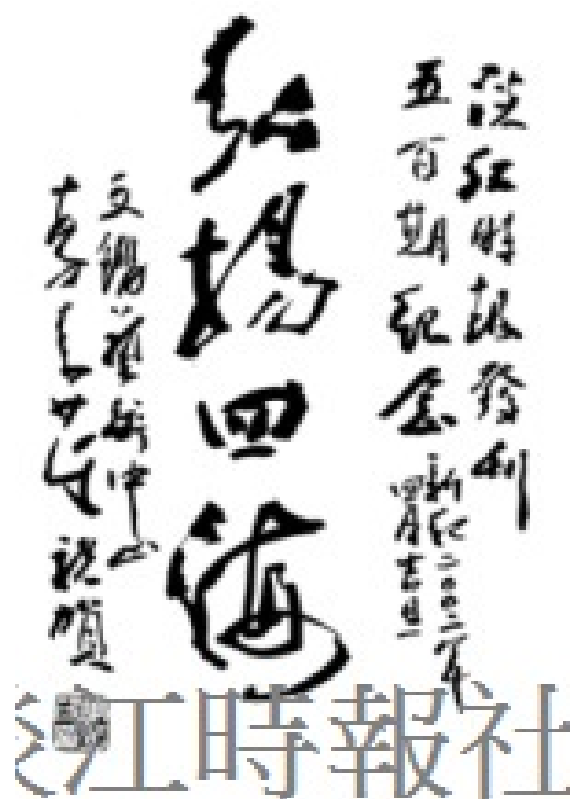 淡江時報發刊
五百期紀念
新紀二〇〇二年
四月
弘揚四海
文錙藝術中心
祝賀
江時報社